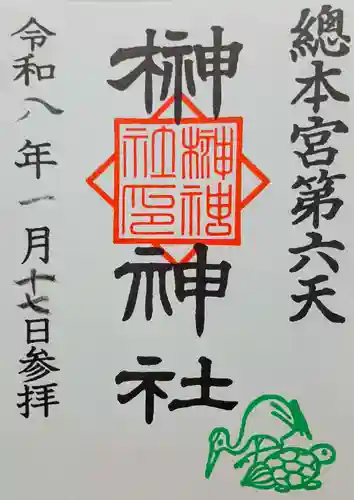 總本宮第六天
榊神社
榊神社印
令和八年一月十七日参拝